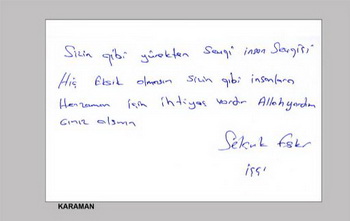 Sizin gibi yürekten Sevgi insan Sevgisi
Hiç Eksik olmasın sizin gibi insanlara
Herzaman için ihtiyaç vardır Allah yardım
cınız olsun
Selçuk
işçi
KARAMAN